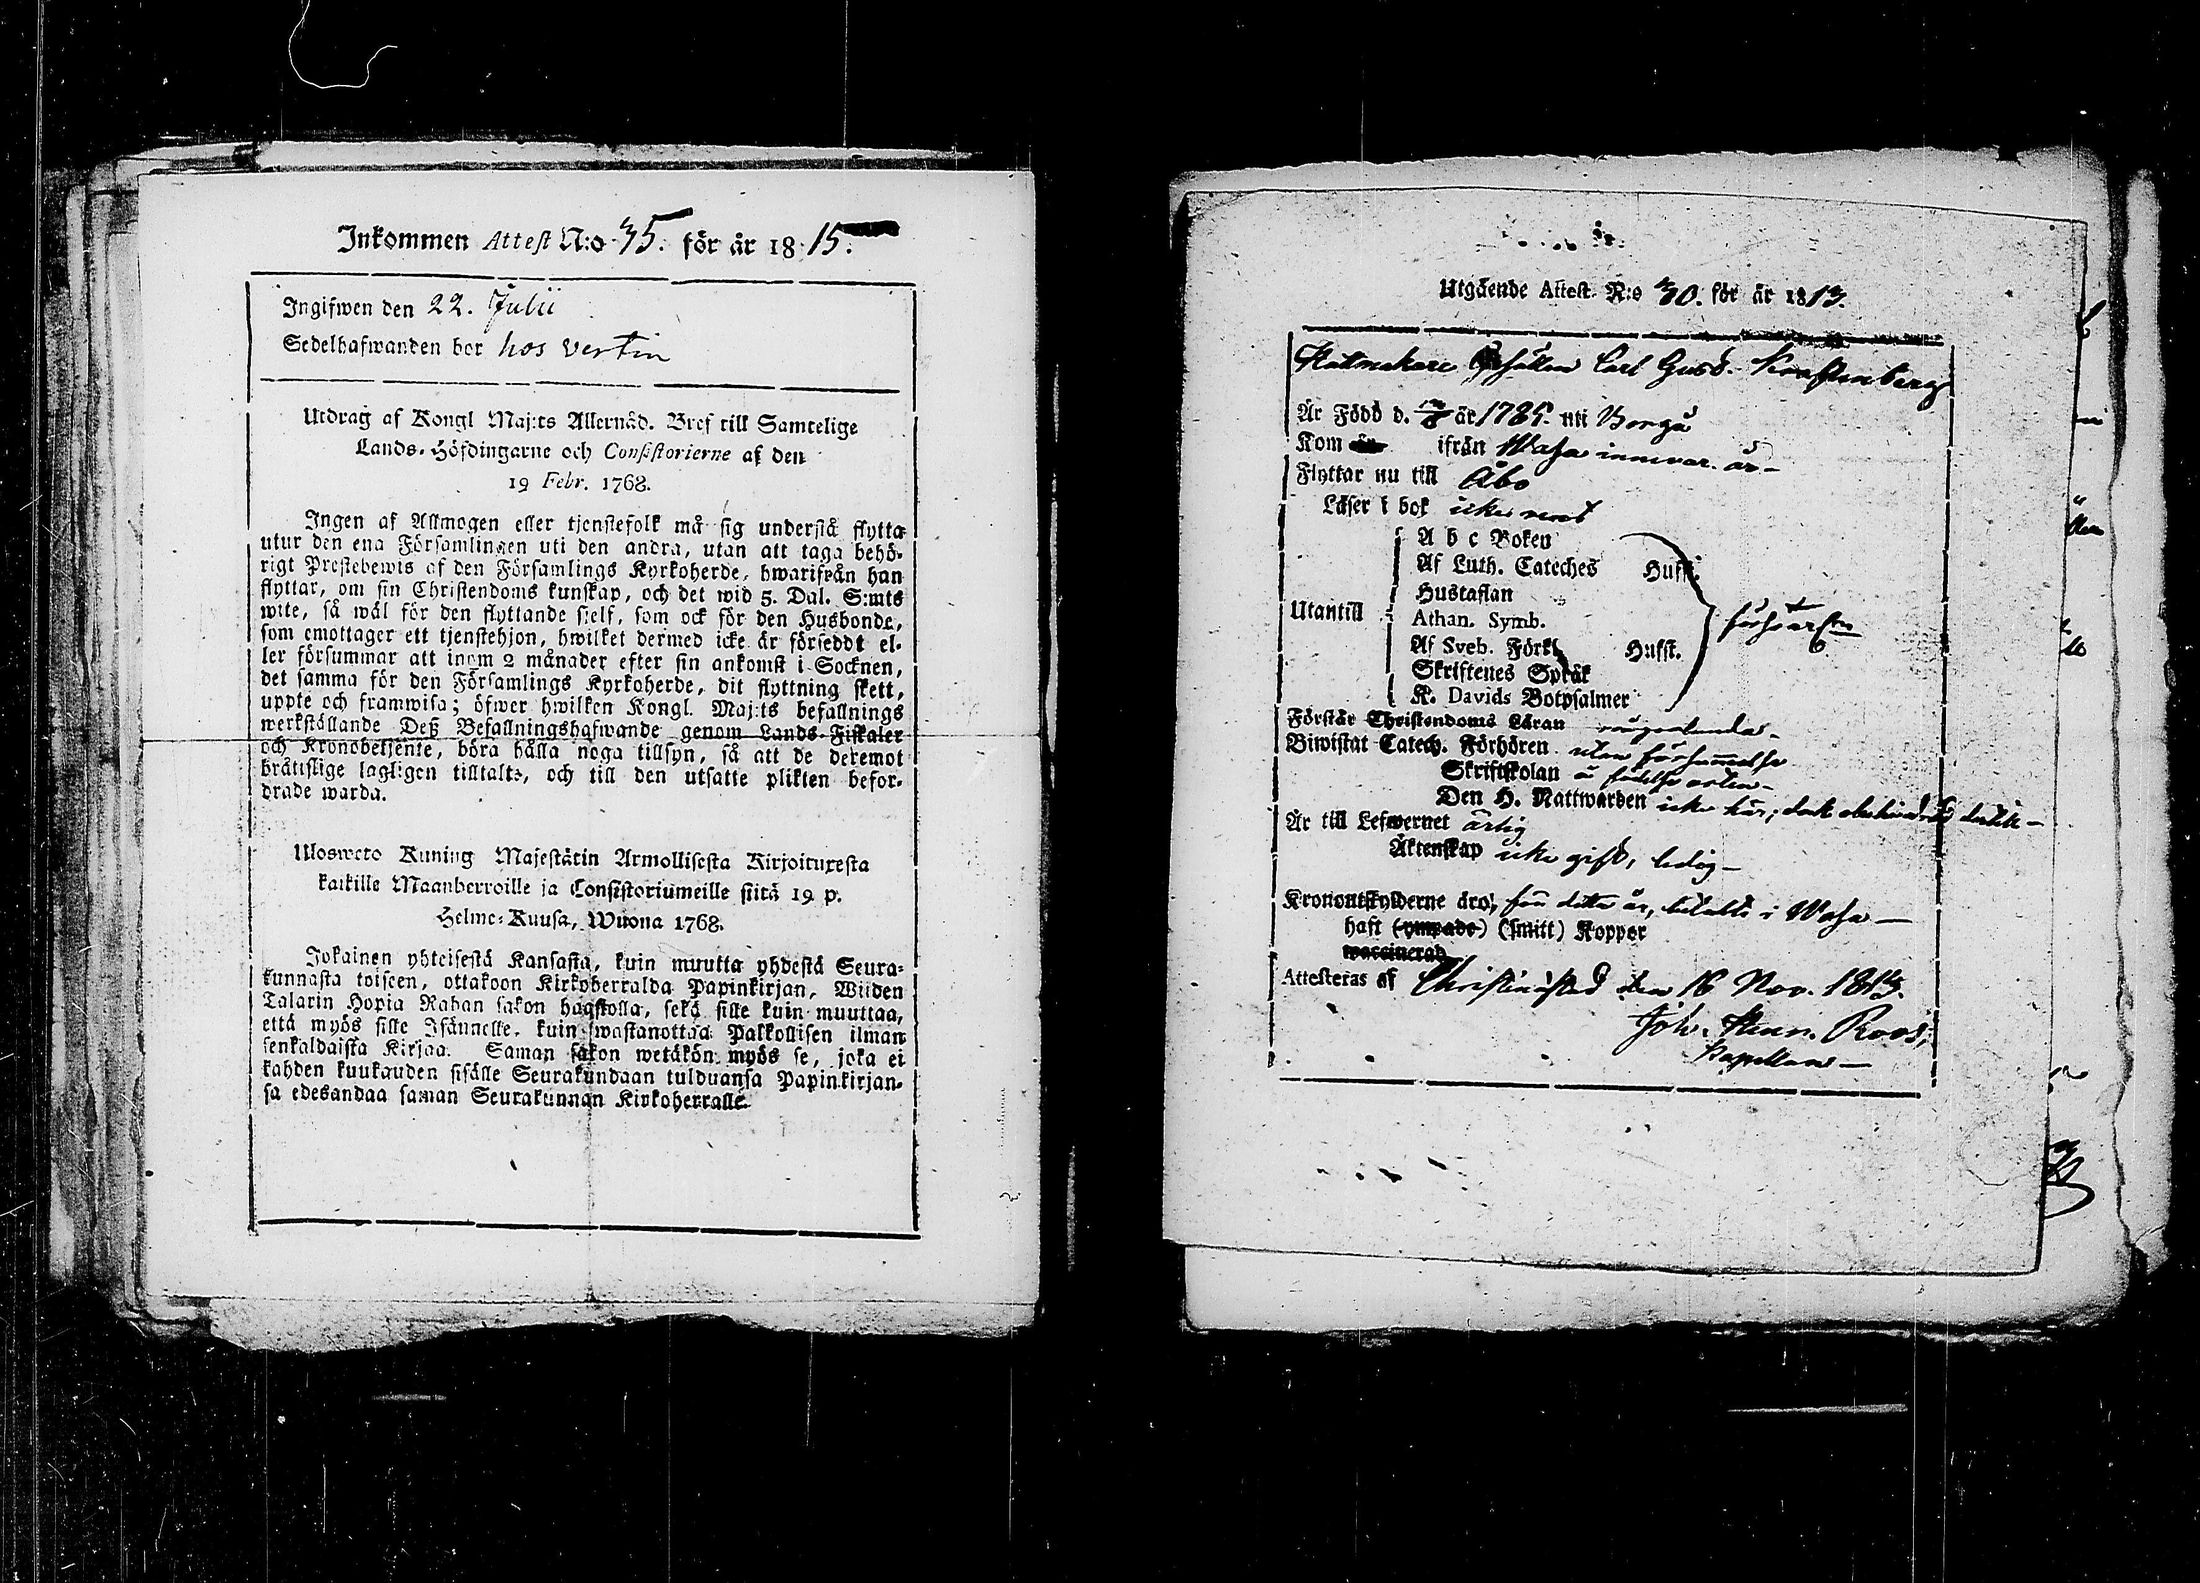 Inkommen Attest N:o 35. för år 1815.
Ingifwen den 22. Julii
Sedelhafwanden bor hos Vertin
Utdrag af Kongl Maj:ts Allernåd. Bref till Samtelige
Lands-Höfdingarne och Consistorierne af den
19 Febr. 1768.
Ingen af Allmogen eller tjenstefolk må sig understå flytta
utur den ena Församlingen uti den andra, utan att taga behö-
rigt Prestebewis af den Församlings Kyrkoherde, hwarifrån han
flyttar, om sin Christendoms kunskap, och det wid 5. Dal. S:mts
wite, så wäl för den flyttande sielf, som ock för den Husbonde,
som emottager ett tjenstehjon, hwilket dermed icke är försedt el-
ler försummar att inom 2 månader efter sin ankomst i Socknen,
det samma för den Församlings Kyrkoherde, dit flyttning skett,
uppte och framwisa; öfwer hwilken Kongl. Maj:ts befallnings
werkställande Deß Befallningshafwande genom Lands-Fiskaler
och Kronobetjente, böra hålla noga tillsyn, så att de deremot
bråttslige lagligen tilltalts, och till den utsatte plikten befor-
drade warda.
Ulosweto Kuning Majestätin Armollisesta Kirjoituxesta
kaikille Maanherroille ja Consistoriumeille siitä 19 p.
Helme-Kuusa, Wuona 1768.
Jokainen yhteisestä Kansasta, kuin muutta yhdestä Seura-
kunnasta toiseen, ottakoon Kirkoherralda Papinkirjan, Wiiden
Talarin Hopia Rahan sakon haastolla, sekä sille kuin muuttaa,
että myös sille Isännelle, kuin wastanottaa Palkollisen ilman
senkaldaista Kirjaa. Saman sakon wetäkön myös se, joka ei
kahden kuukauden sisälle Seurakundaan tulduansa Papinkirjan-
sa edesandaa saman Seurakunnan Kirkoherralle.
Utgående Attest. N:o 30. för år 1813.
Hattmakare Gesällen Carl Gust. Kraftenberg
Är Född d. år 1785. uti Borgå
Kom ifrån Wasa innevar. år-
Flyttar nu till Åbo
Läser i bok icke rent
A b c Boken
Af Luth. Cateches Hufst.
Hustaflan
Utantill Athan. Symb.
Af Sveb. Förkl. Hufst.
Skriftenes Språk
K. Davids Botpsalmer
Förstår Christendoms Läran
Biwistat Catech. Förhören utan försummelse
Skriftskolan å födelse orten-
Den H. Nattwarden icke här;
Är till Lefwernet ärlig
Äktenskap icke gift, ledig-
Kronoutskylderne äro, för detta år, betalte i Wasa-
haft (ympade) (smitt) Koppor
waccinerad
Attesteras af Christinistad den 16 Nov. 1813.
Joh. Henr. Roos,
Kapellan-